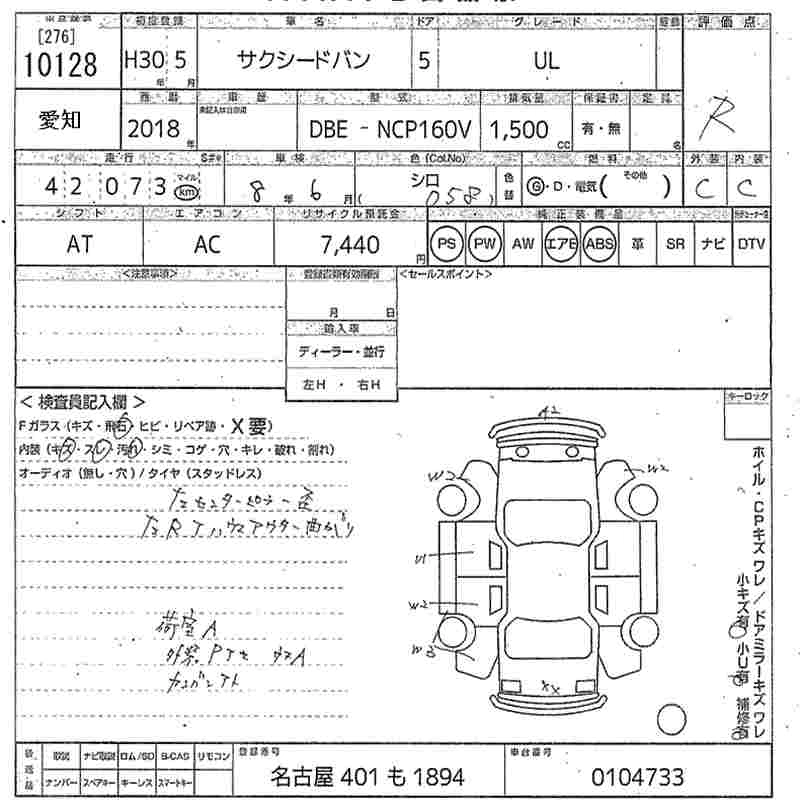 出品番号 初度登録 車名 ドア グレード 評価点
[276]
10128 H30 5 サクシードバン 5 UL
年 月
西暦 車歴 型式 排気量 保証書 定員
愛知 2018年 DBE - NCP160V 1,500 CC 有・無 名 R
走行 車検 色(Col.No) 燃料 外装 内装
42073 マイル km 8年 6月 シロ (058) 色替 G・D・電気( その他 ) C C
シフト エアコン リサイクル預託金 純正装備品
AT AC 7,440円 PS PW AW エアB ABS 革 SR ナビ DTV
<注意事項> 登録書類有効期限 <セールスポイント>
月 日
輸入車
ディーラー・並行
左H ・ 右H
<検査員記入欄> キーロック
Fガラス(キズ・飛石・ヒビ・リペア跡・X要)
内装(キズ・スレ・汚れ・シミ・コゲ・穴・キレ・破れ・割れ)
オーディオ(無し・穴)/タイヤ(スタッドレス)
左センターピラー歪
荷室A
A2
W2 W2
U1
W2
W3
XX
ホイル・CPキズワレ/ドアミラーキズワレ
小キズ有 小U有 補修有
後送品 取説 ナビ取説 ロム/SD B-CAS リモコン 登録番号 車台番号
ナンバー スペアキー キーレス スマートキー 名古屋 401 も 1894 0104733